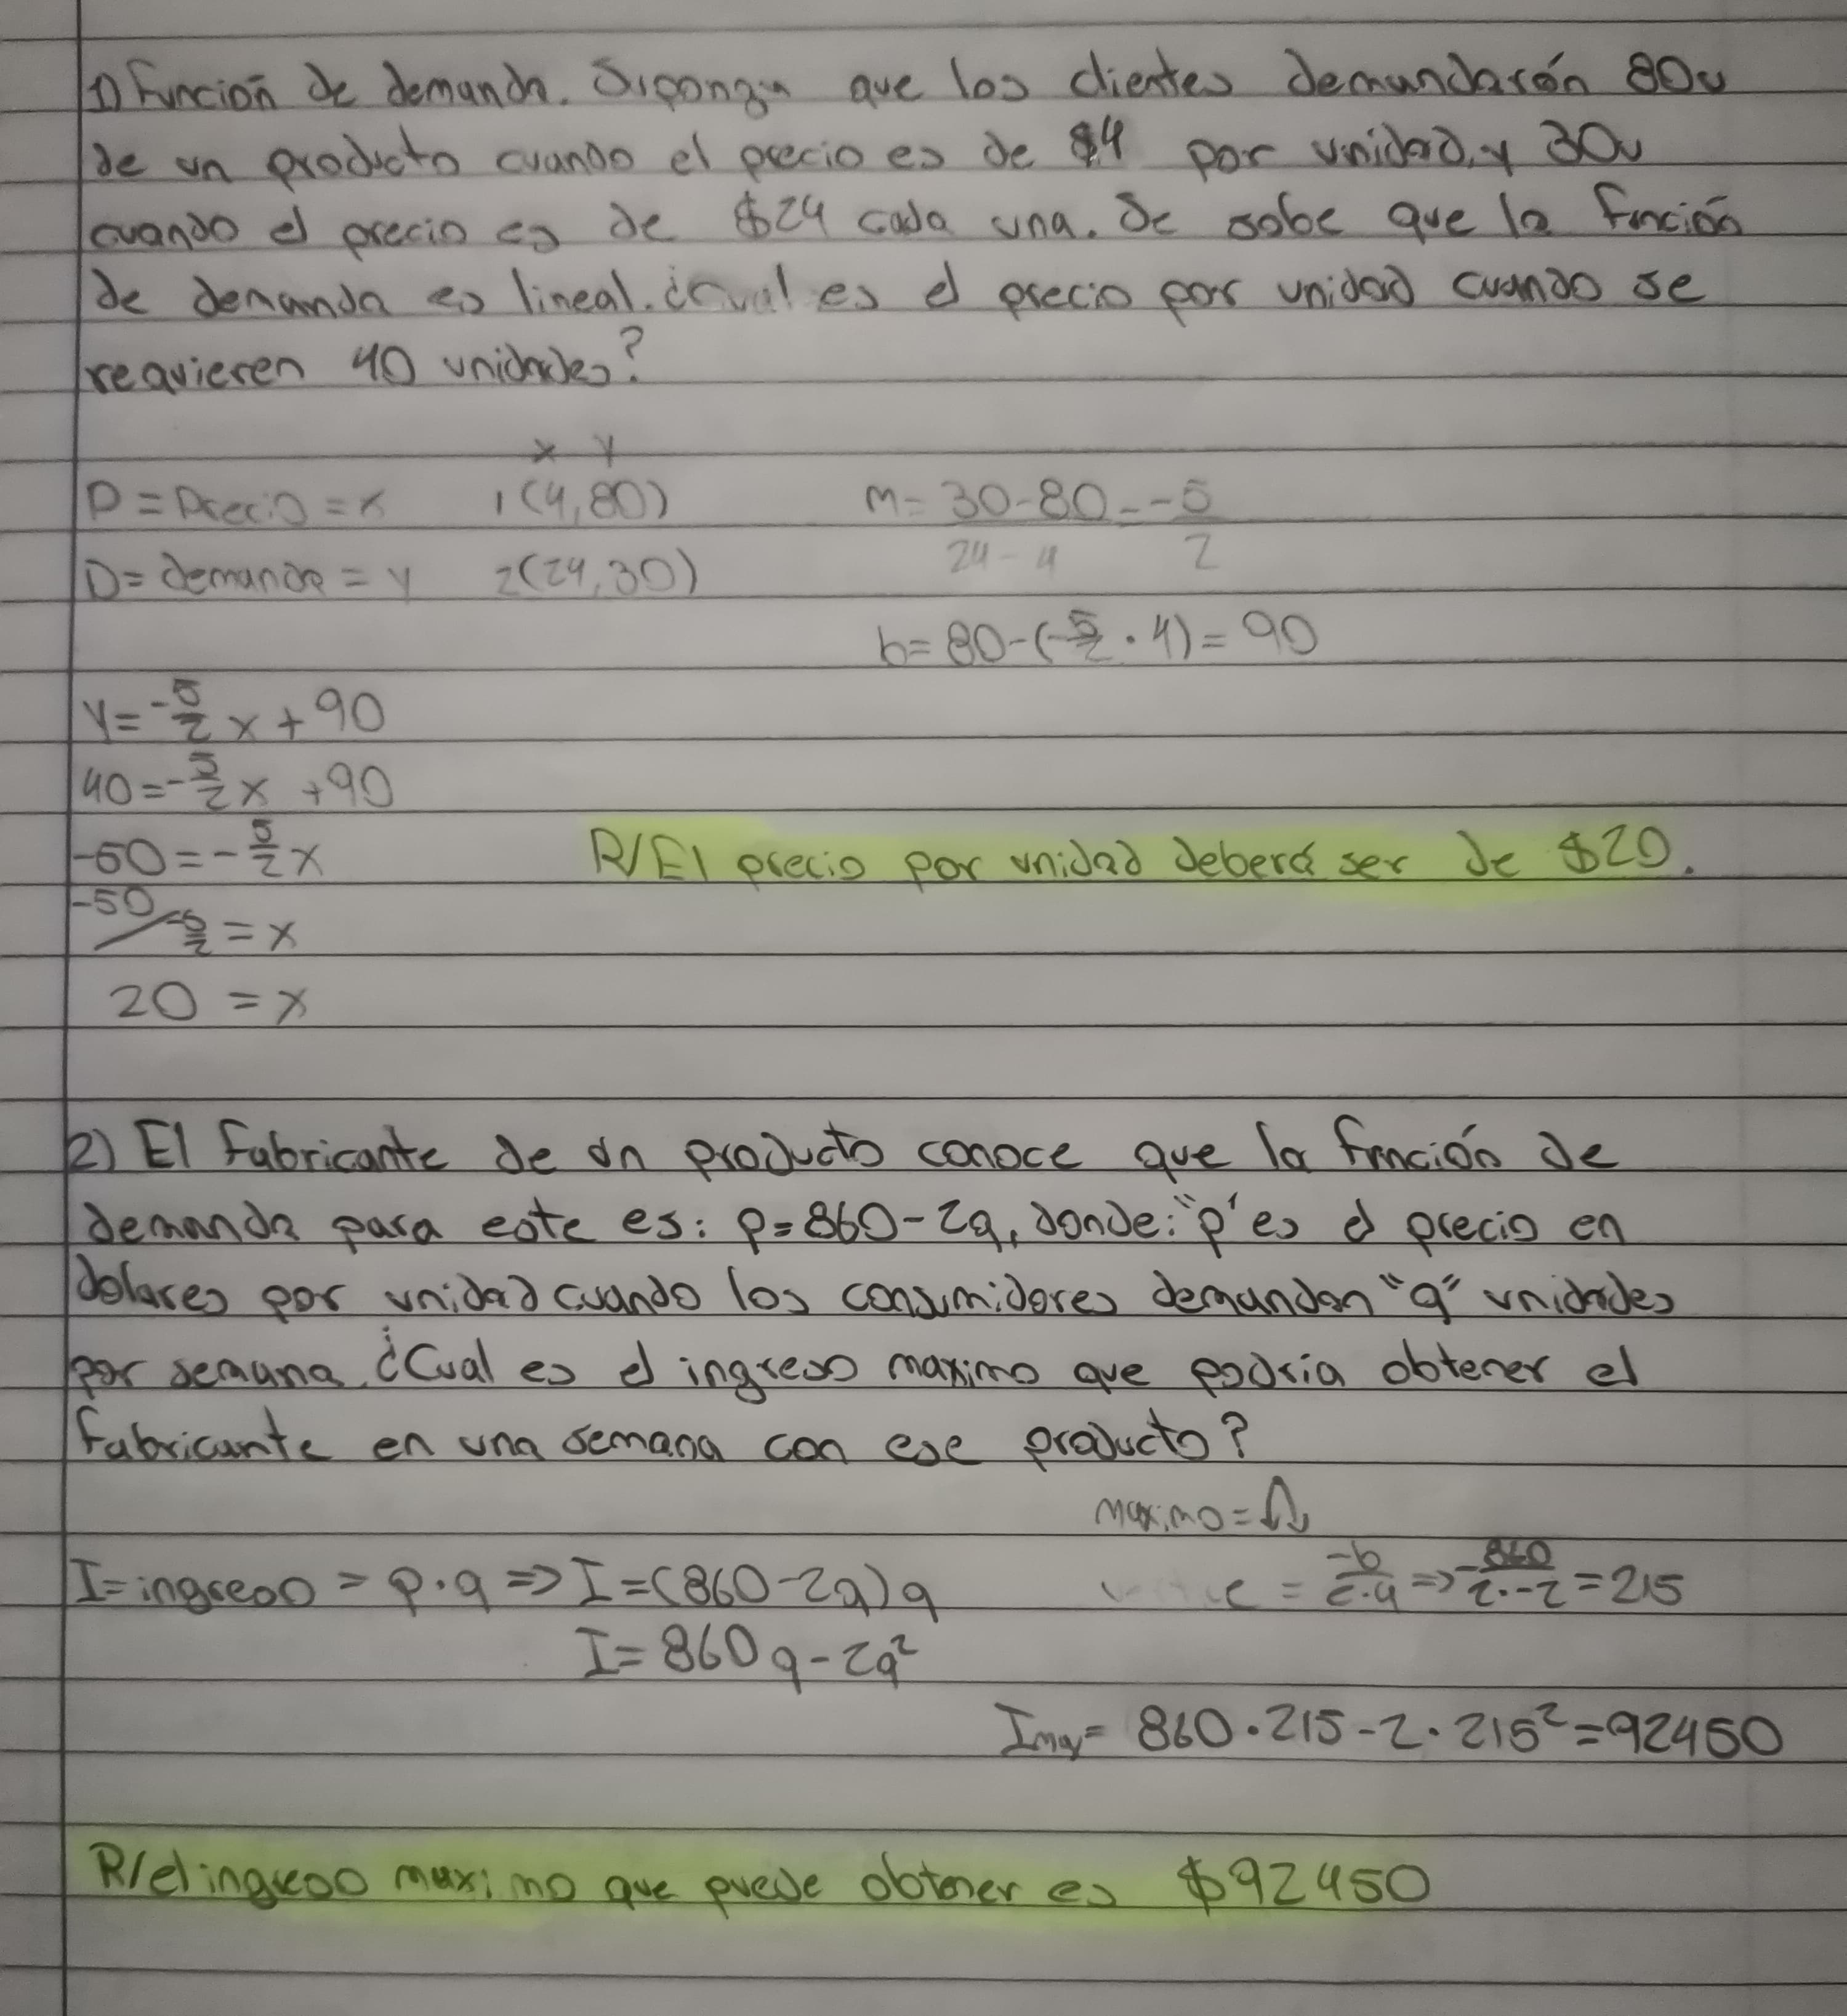 1) Función de demanda. Suponga que los clientes demandarón 80u
de un producto cuando el precio es de $4 por unidad, y 30u
cuando el precio es de $24 cada una. Se sabe que la función
de demanda es lineal. ¿Cual es el precio por unidad cuando se
requieren 40 unidades?
x y
P = Precio = x 1(4,80) m = 30-80/24-4 = -5/2
D = demanda = y 2(24,30)
b = 80-(-5/2 · 4) = 90
y = -5/2 x + 90
40 = -5/2 x + 90
-50 = -5/2 x R/El precio por unidad deberá ser de $20.
-50/-5/2 = x
20 = x
2) El fabricante de un producto conoce que la función de
demanda para este es: p=860-2q, donde: "p" es el precio en
dolares por unidad cuando los consumidores demandan "q" unidades
por semana. ¿Cual es el ingreso maximo que podria obtener el
fabricante en una semana con ese producto?
maximo = ∩
I = ingreso = p·q => I = (860-2q)q = -b/2·a => -860/2·-2 = 215
I = 860q - 2q²
Imax = 860·215-2·215² = 92450
R/el ingreso maximo que puede obtener es $92450